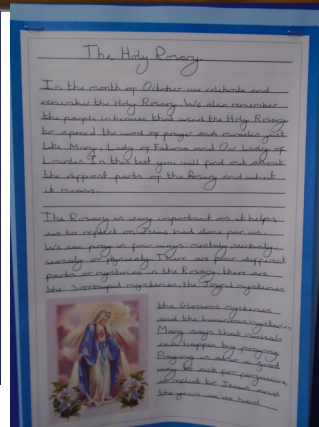 The Holy Rosary
In the month of October we celebrate and
remember the Holy Rosary. We also remember
the people in heaven that used the Holy Rosary
to spread the word of prayer and miracles just
like Mary, Lady of Fatima and Our Lady of
Lourdes. In this text you will find out about
the different parts of the Rosary and what
it means.
The Rosary is very important as it helps
us to reflect on Jesus had done for us.
We can pray in four ways: mentaly, verbaly,
or physicaly. There are four different
parts or mysteries in the Rosary there are
the Sorrowful mysteries, the Joyful mysteries
the Glorious mysteries
and the luminous mysteries
Mary says that
can happen by praying.
Praying is also a good
way to ask for forgiveness
to Jesus and
the